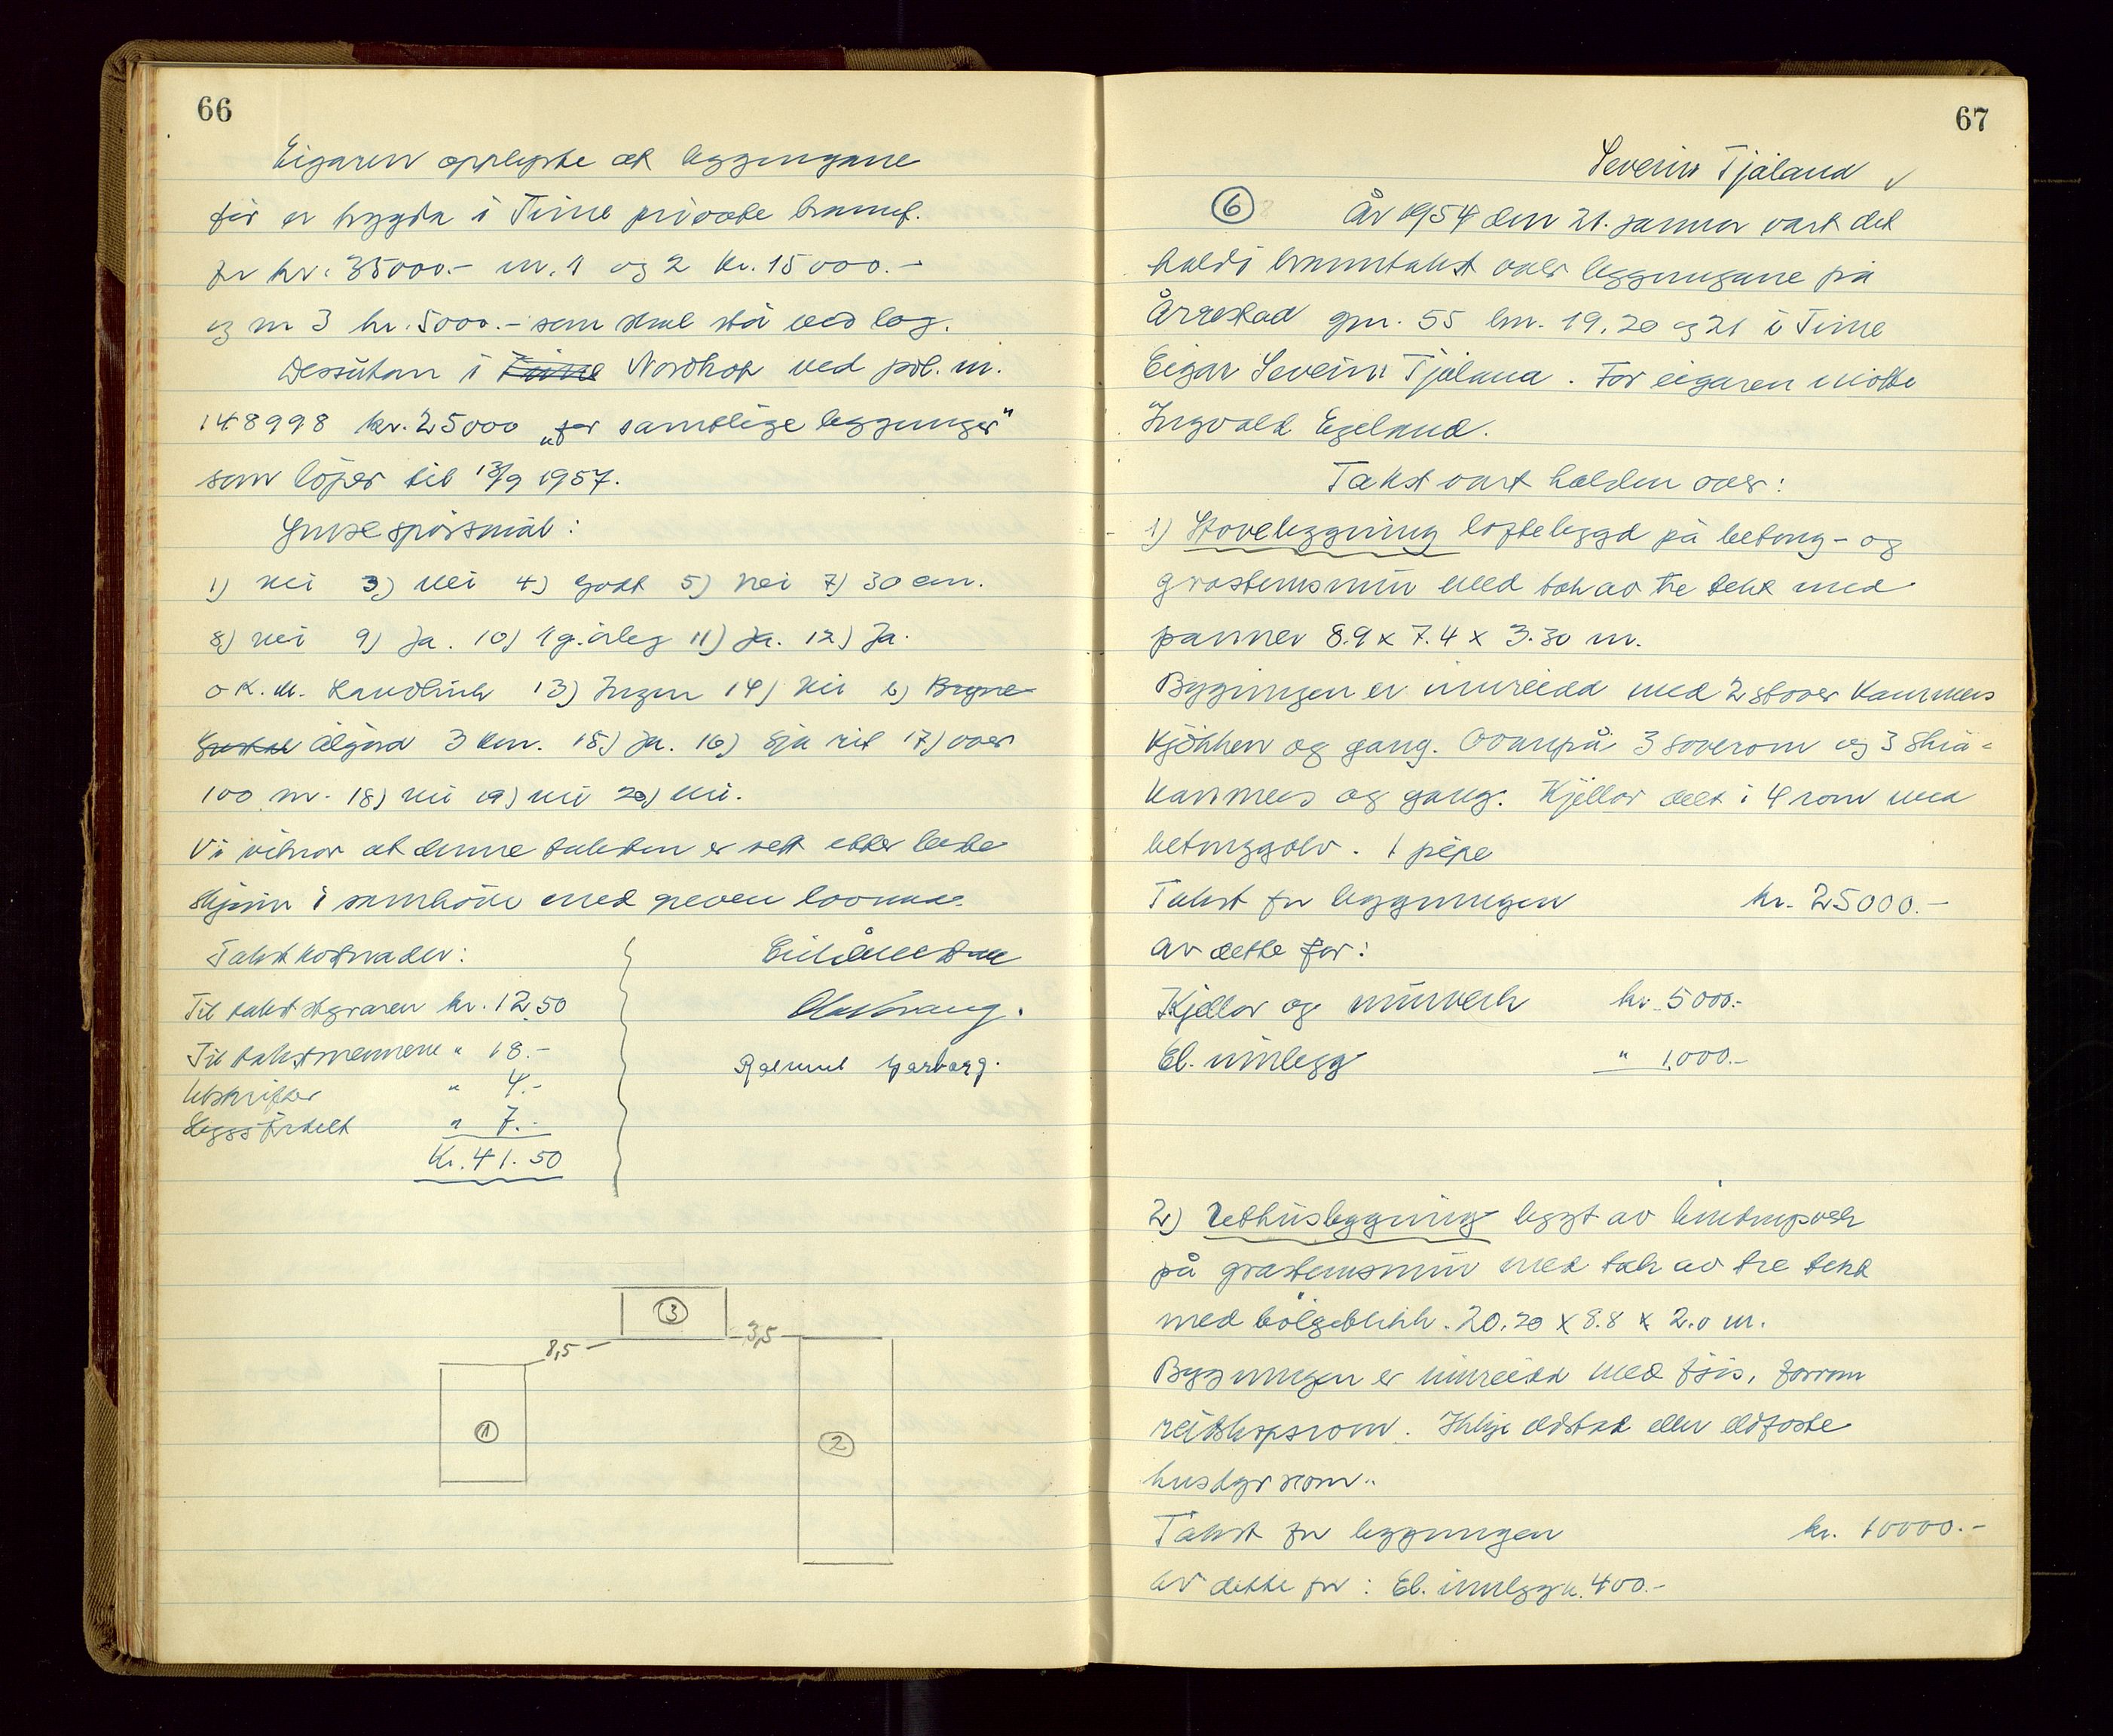 66
Eigaren opplyste at byggingane
før er trygda i Time private brannt.
for kr. 35000.- nr. 1 og 2 kr. 15000.-
og nr 3 kr. 5000.- som skal stå ved lag.
Dessutan i Time Nordhop ved pol. nr.
148998 kr. 25000 „for samtlige bygginger"
som löper til 13/9 1957.
Ymse spörsmål:
1) nei 3) nei 4) godt 5) nei 7) 30 cm.
8) nei 9) Ja. 10) 1 g. årleg 11) Ja. 12) Ja.
13) Ingen 14) nei Bryne
Ålgård 3 km. 15) Ja. 16) Sjå rit 17) over
100 m. 18) nei 19) nei 20) nei.
Vi vitnar at denne taksten er sett etter beste
skjönn i samhöve med greven lovnad.
Takstkostnader:
Til takst styraren kr. 12.50
Til takstmennene " 18.-
Utskrifter " 4.-
" 7.-
Kr. 41.50
Garborg.
3
8,5
3,5
1
2
67
Severin Tjåland
6 År 1954 den 21. januar vart det
haldi branntakst over byggingane på
Årrestad gnr. 55 bnr. 19, 20 og 21 i Time
Eigar Severin Tjåland. For eigaren møtte
Ingvald Egeland.
Takst vart halden over:
1) Stovebygning loftebygd på betong- og
gråsteinsmur med tak av tre tekt med
panner 8.9 x 7.4 x 3.30 m.
Bygningen er innreidd med 2 stover kammers
kjøkken og gang. Ovanpå 3 soverom og 3 skrå-
kammers og gang. Kjellar delt i 4 rom med
betonggolv. 1 pipe
Takst for byggningen kr. 25000.-
av dette for:
Kjellar og murverk kr. 5000.-
El. innlegg " 1.000.-
2) Uthusbygging bygt av bindingsverk
på gråsteinsmur med tak av tre tekt
med bølgeblikk. 20.20 x 8.8 x 2.0 m.
Byggningen er innreidd med fjøs, forrom
reidskapsrom. Ikkje eldstad eller eldfaste
husdyrrom.
Takst for byggningen kr. 10000.-
av dette for: El. innlegg k. 400.-